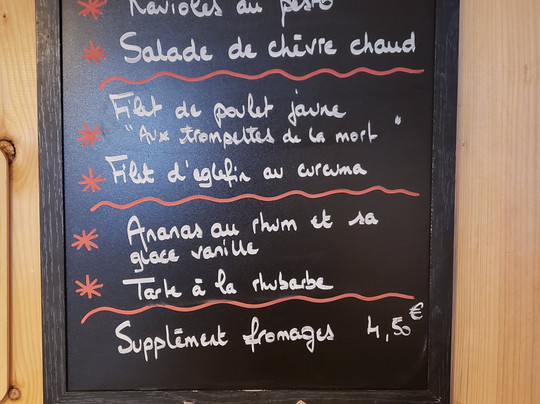 Ravioles au pesto
Salade de chèvre chaud
Filet de poulet jaune
"Aux trompettes de la mort"
Filet d'eglefin au curcuma
Ananas au rhum et sa
glace vanille
Tarte à la rhubarbe
Supplément fromages 4,50€